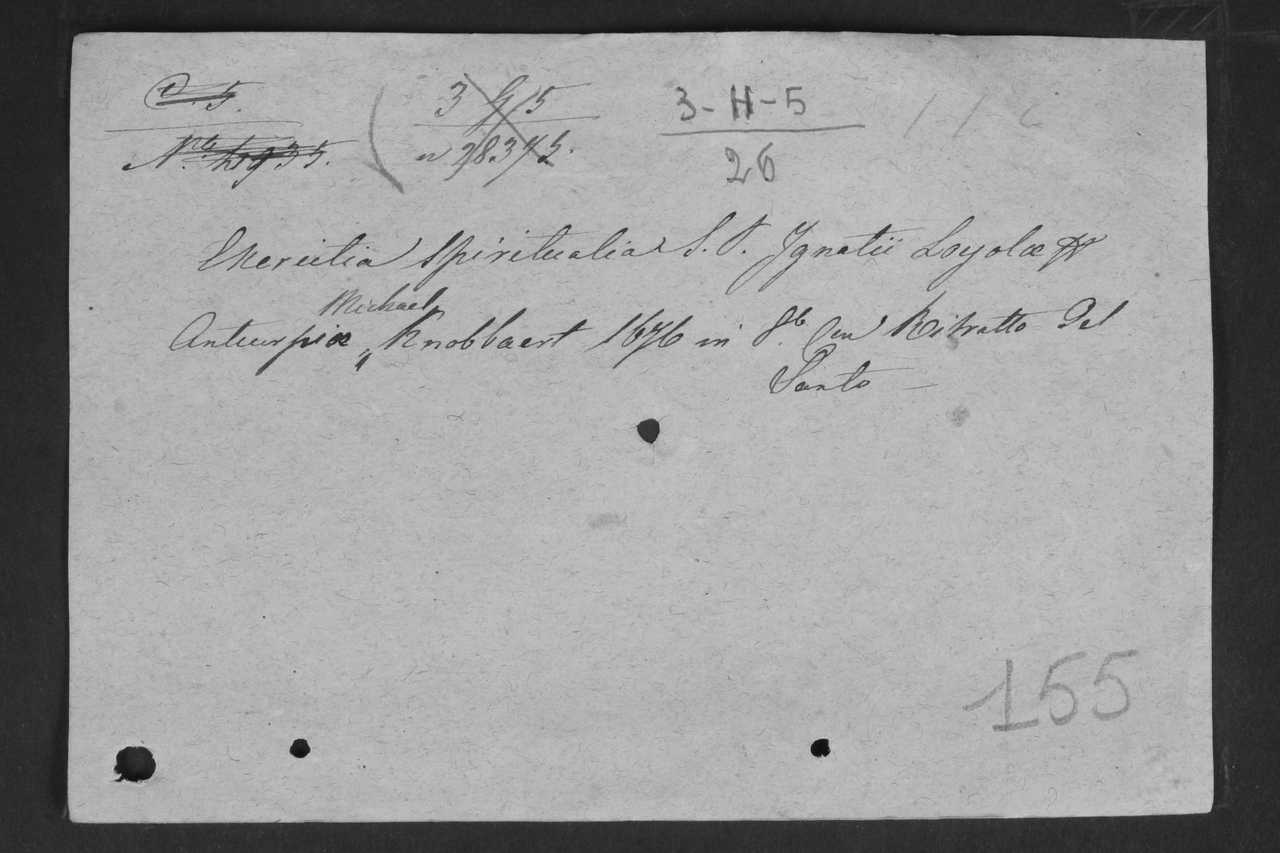 3-H-5
26
Exercitia Spiritualia S. P. Ignatii Loyolæ &
Michael
Antuerpiæ „ Knobbaert 1676 in 8.º Con Ritratto del
Santo —
155